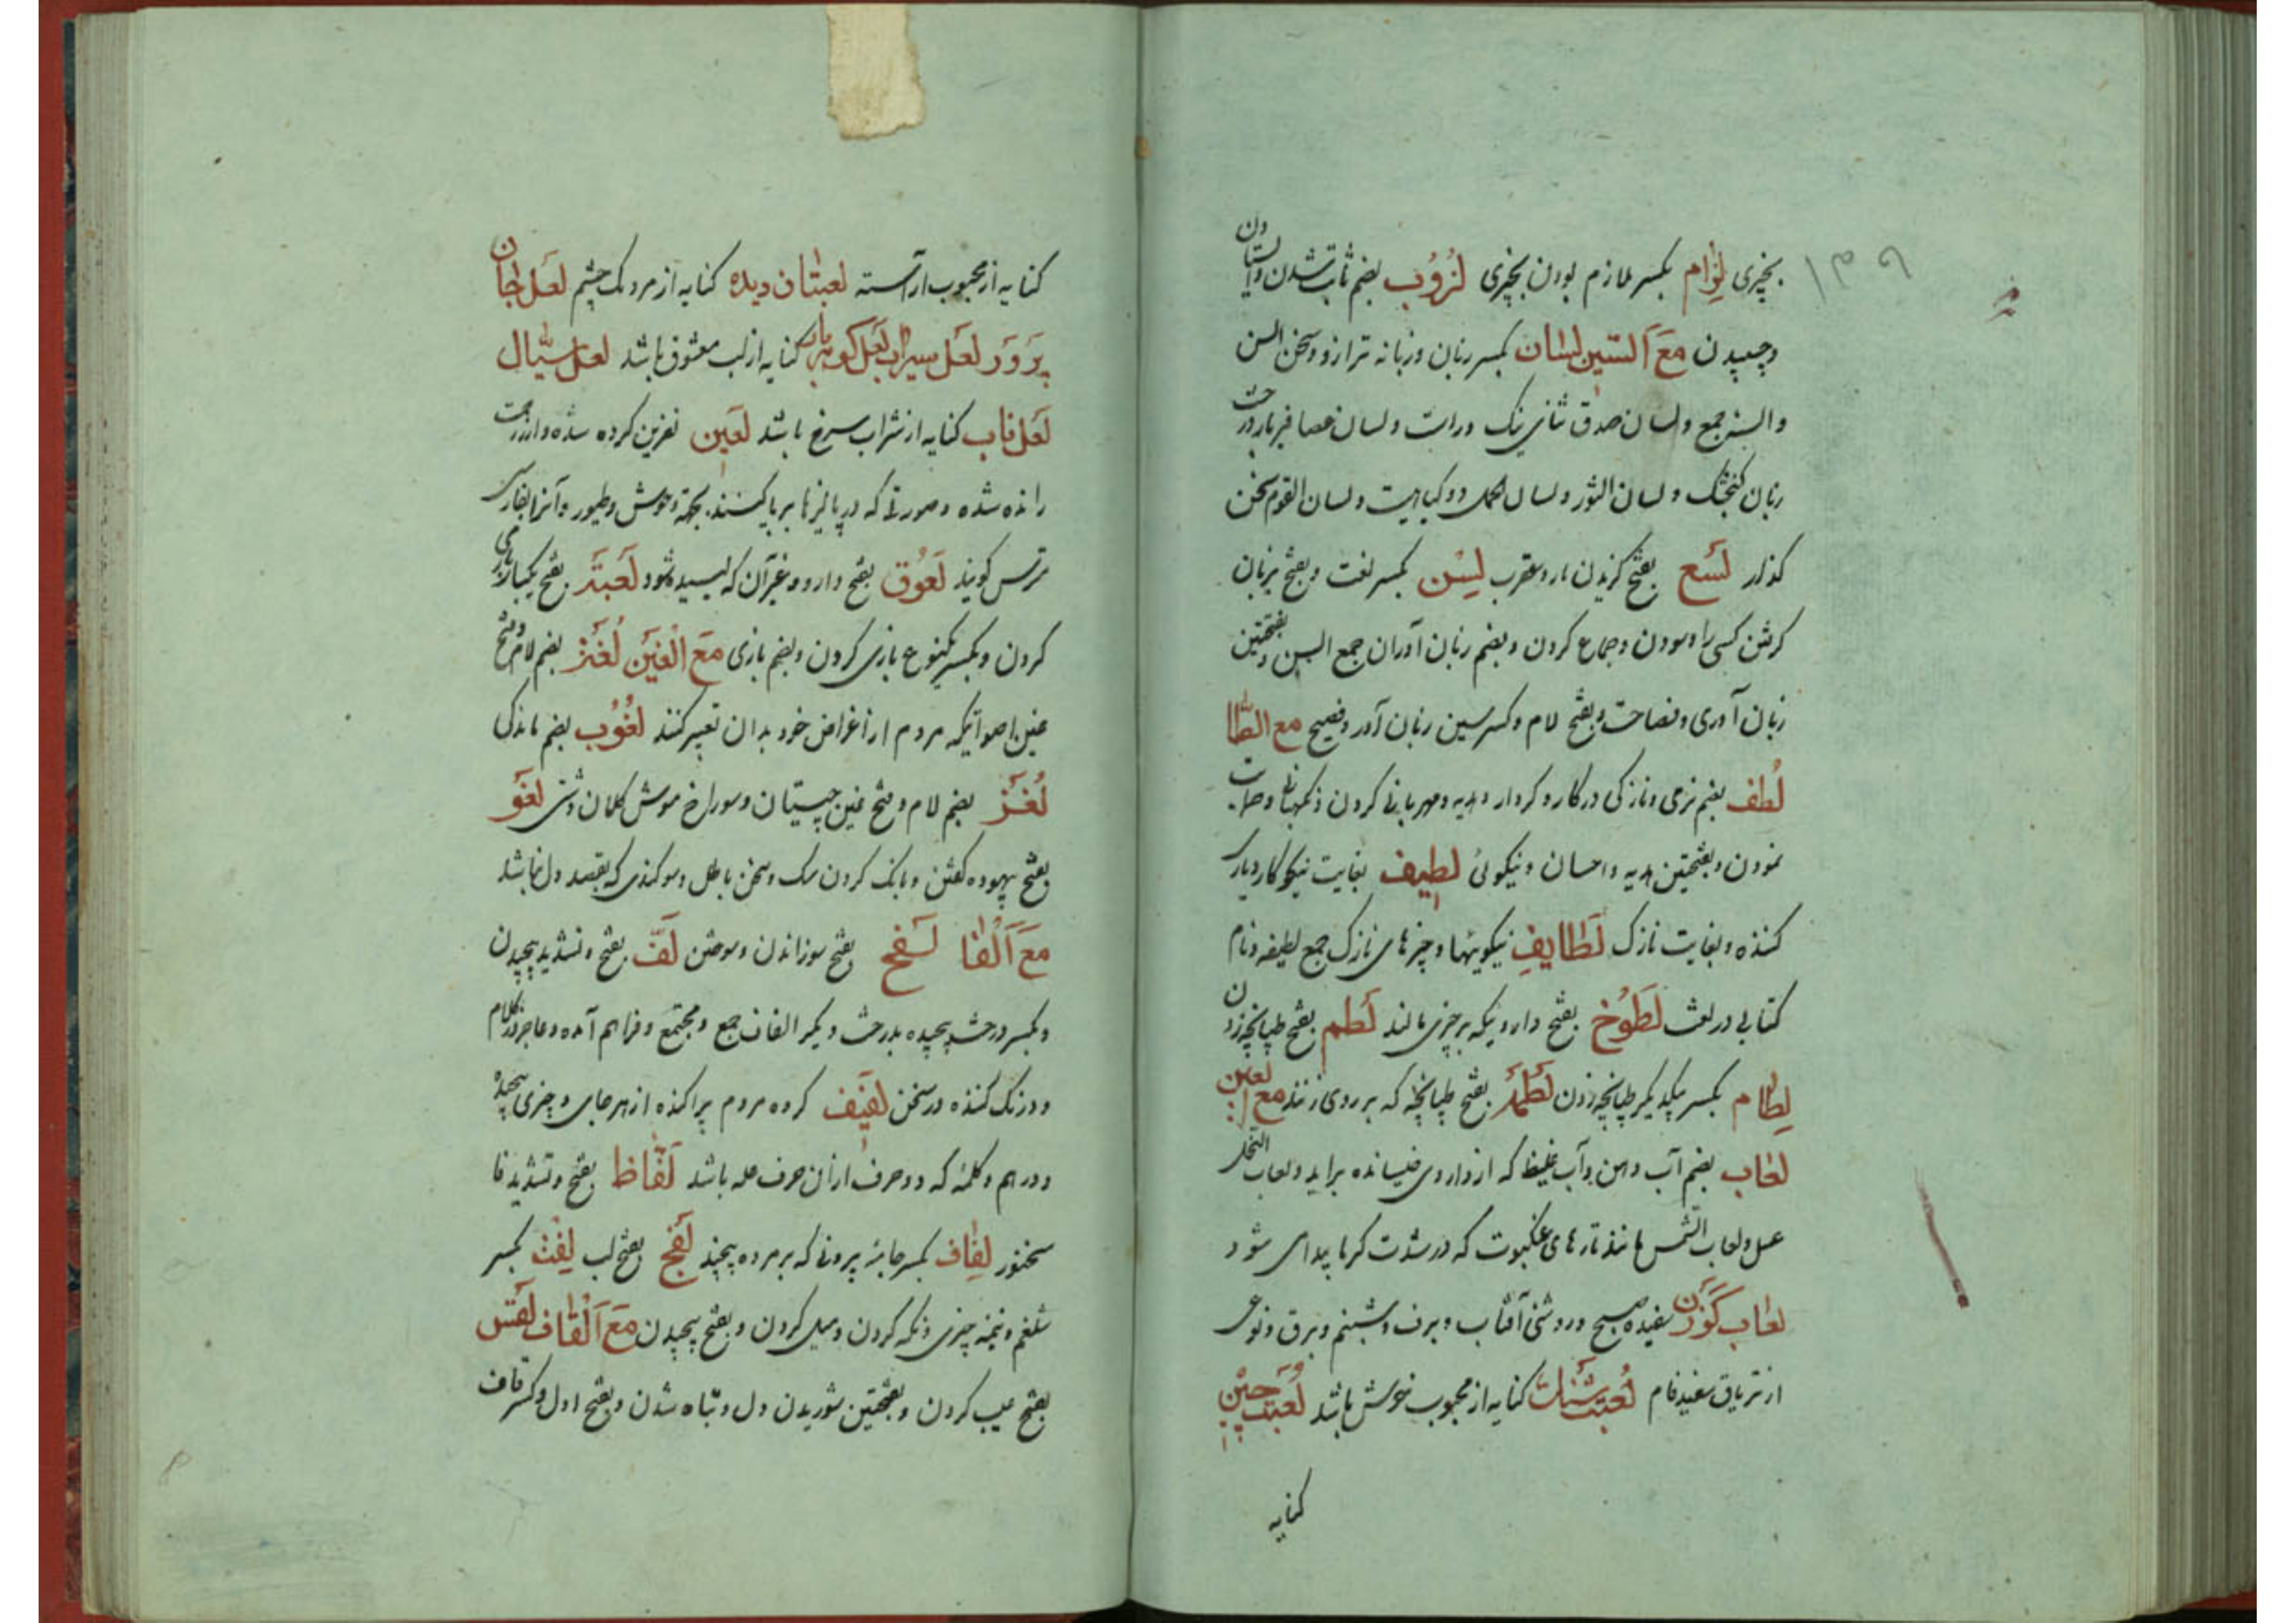 بچیزی لِزام بکسر ملازم بودن بچیزی لُزُوب بضم ثابت شدن و ایستادن
و چسپیدن مَعَ السّین لِسَان بکسر زبان و زبانه ترازو و سخن السن
و السنه جمع و لسان صدق ثنای نیک و راست و لسان عصافیر بار درخت
زبان کنجشک و لسان الثور و لسان الحمل دو کیاهیست و لسان القوم سخن
کذار لَسع بفتح کزیدن مار و عقرب لِسن بکسر لغت و بفتح بزبان
کرفتن کسی را و سودن و جماع کردن و بضم زبان آوران جمع السن و بفتحتین
زبان آوری و فصاحت و بفتح لام و کسر سین زبان آور و فصیح مع الطّا
لُطف بضم نرمی و نازکی در کار و کردار و هدیه و مهربانی کردن و نکهبانی و
نمودن و بفتحتین هدیه و احسان و نیکوئی لطیف بغایت نیکو کار و یاری
کننده و بغایت نازک لَطایِف نیکوییها و چیزهای نازک جمع لطیفه و نام
کتابی در لغت لَطُوخ بفتح دارویکه بر چیزی مالند لَطم بفتح طپانچه زدن
لِطام بکسر یکدیکر طپانچه زدن لَطمَه بفتح طپانچه که بر روی زنند مع العین
لعاب بضم آب دهن و آب غلیظ که از داروی خیسانده براید و لعاب النحل
عسل و لعاب الشمس مانند تارهای عنکبوت که در شدت کرما پیدا می شود
لعاب کَوَزن سفیده صبح و روشنی آفتاب و برف و شبنم و برق و نوعی
از تریاق سفید فام لُعبت کنایه از محبوب خوش باشد لُعبت چین
کنایه
کنایه از محبوب آراسته لعبتان دیده کنایه از مردمک چشم لعل جان
پَروَر لعل سیراب لعل کهربار کنایه از لب معشوق باشد لعل سیّال
لَعل ناب کنایه از شراب سرخ باشد لَعین نفرین کرده شده و از رحمت
رانده شده و صورتی که در پالیزها بر پا کنند بجهة وحوش و طیور و آنرا بفارسی
مترس کویند لَعُوق بفتح دارو و غیر آن که لیسیده شود لَعبَة بفتح یکبار بازی
کردن و بکسر یکنوع بازی کردن و بضم بازی مَعَ الغَین لُغَز بضم لام و فتح
غین اصواتیکه مردم از اغراض خود بدان تعبیر کنند لُغُوب بضم ماندکی
لُغَز بضم لام و فتح غین چیستان و سوراخ موش کلان دشتی لَغو
بفتح بیهوده کفتن و بانک کردن سک و سخن باطل و سوکندی که بقصد دل نباشد
مَعَ اَلفا لَفح بفتح سوزاندن و سوختن لَفّ بفتح و تشدید پیچیدن
و بکسر درخت پیچیده بدرخت دیکر الفاف جمع و مجتمع و فراهم آمده و عاجز در کلام
و درنک کننده در سخن لَفیف کروه مردم پراکنده از هر جای و چیزی پیچیده
و درهم و کلمهٔ که دو حرف از آن حرف عله باشد لَفّاظ بفتح و تشدید فا
سخنور لِفاف بکسر جامهٔ بیرونی که بر مرده پیچند لَفج بفتح لب لِفت بکسر
شلغم و نیمه چیزی و نکه کردن و میل کردن و بفتح پیچیدن مَعَ اَلقاف لَقس
بفتح عیب کردن و بفتحتین شوریدن دل و تباه شدن و بفتح اول و کسر قاف